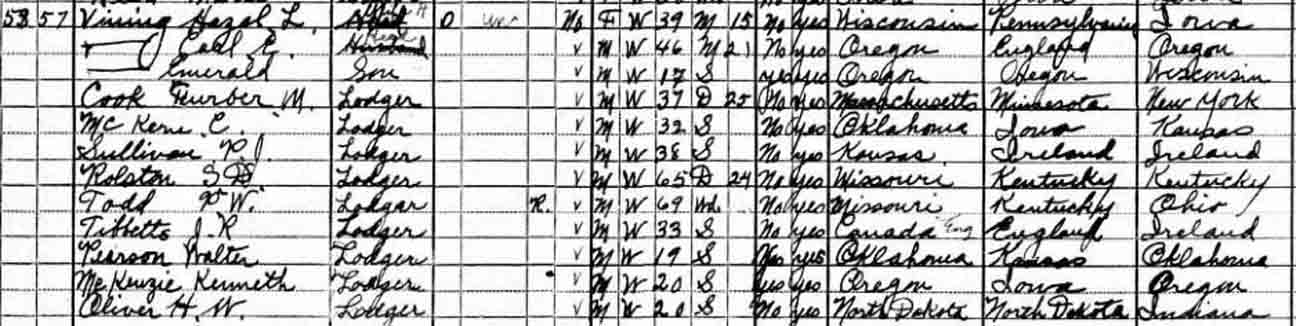 53 57 Vining Hazel L. H O No F W 39 M 15 No yes Wisconsin Pennsylvania Iowa
Earl E. Husband Head v M W 46 M 21 No yes Oregon England Oregon
Emerald Son v M W 17 S yes yes Oregon Oregon Wisconsin
Cook Furber M. Lodger v M W 37 D 25 No yes Massachusetts Minnesota New York
McKern C. Lodger v M W 32 S No yes Oklahoma Iowa Kansas
Sullivan P.J. Lodger v M W 38 S No yes Kansas Ireland Ireland
Rolston S D Lodger v M W 65 D 24 No yes Missouri Kentucky Kentucky
Todd W. Lodger R. v M W 69 Wd No yes Missouri Kentucky Ohio
Tibbetts J.R Lodger v M W 33 S No yes Canada Eng England Ireland
Pearson Walter Lodger v M W 19 S No yes Oklahoma Kansas Oklahoma
McKenzie Kenneth Lodger v M W 20 S yes yes Oregon Iowa Oregon
Oliver H.W. Lodger v M W 20 S No yes North Dakota North Dakota Indiana